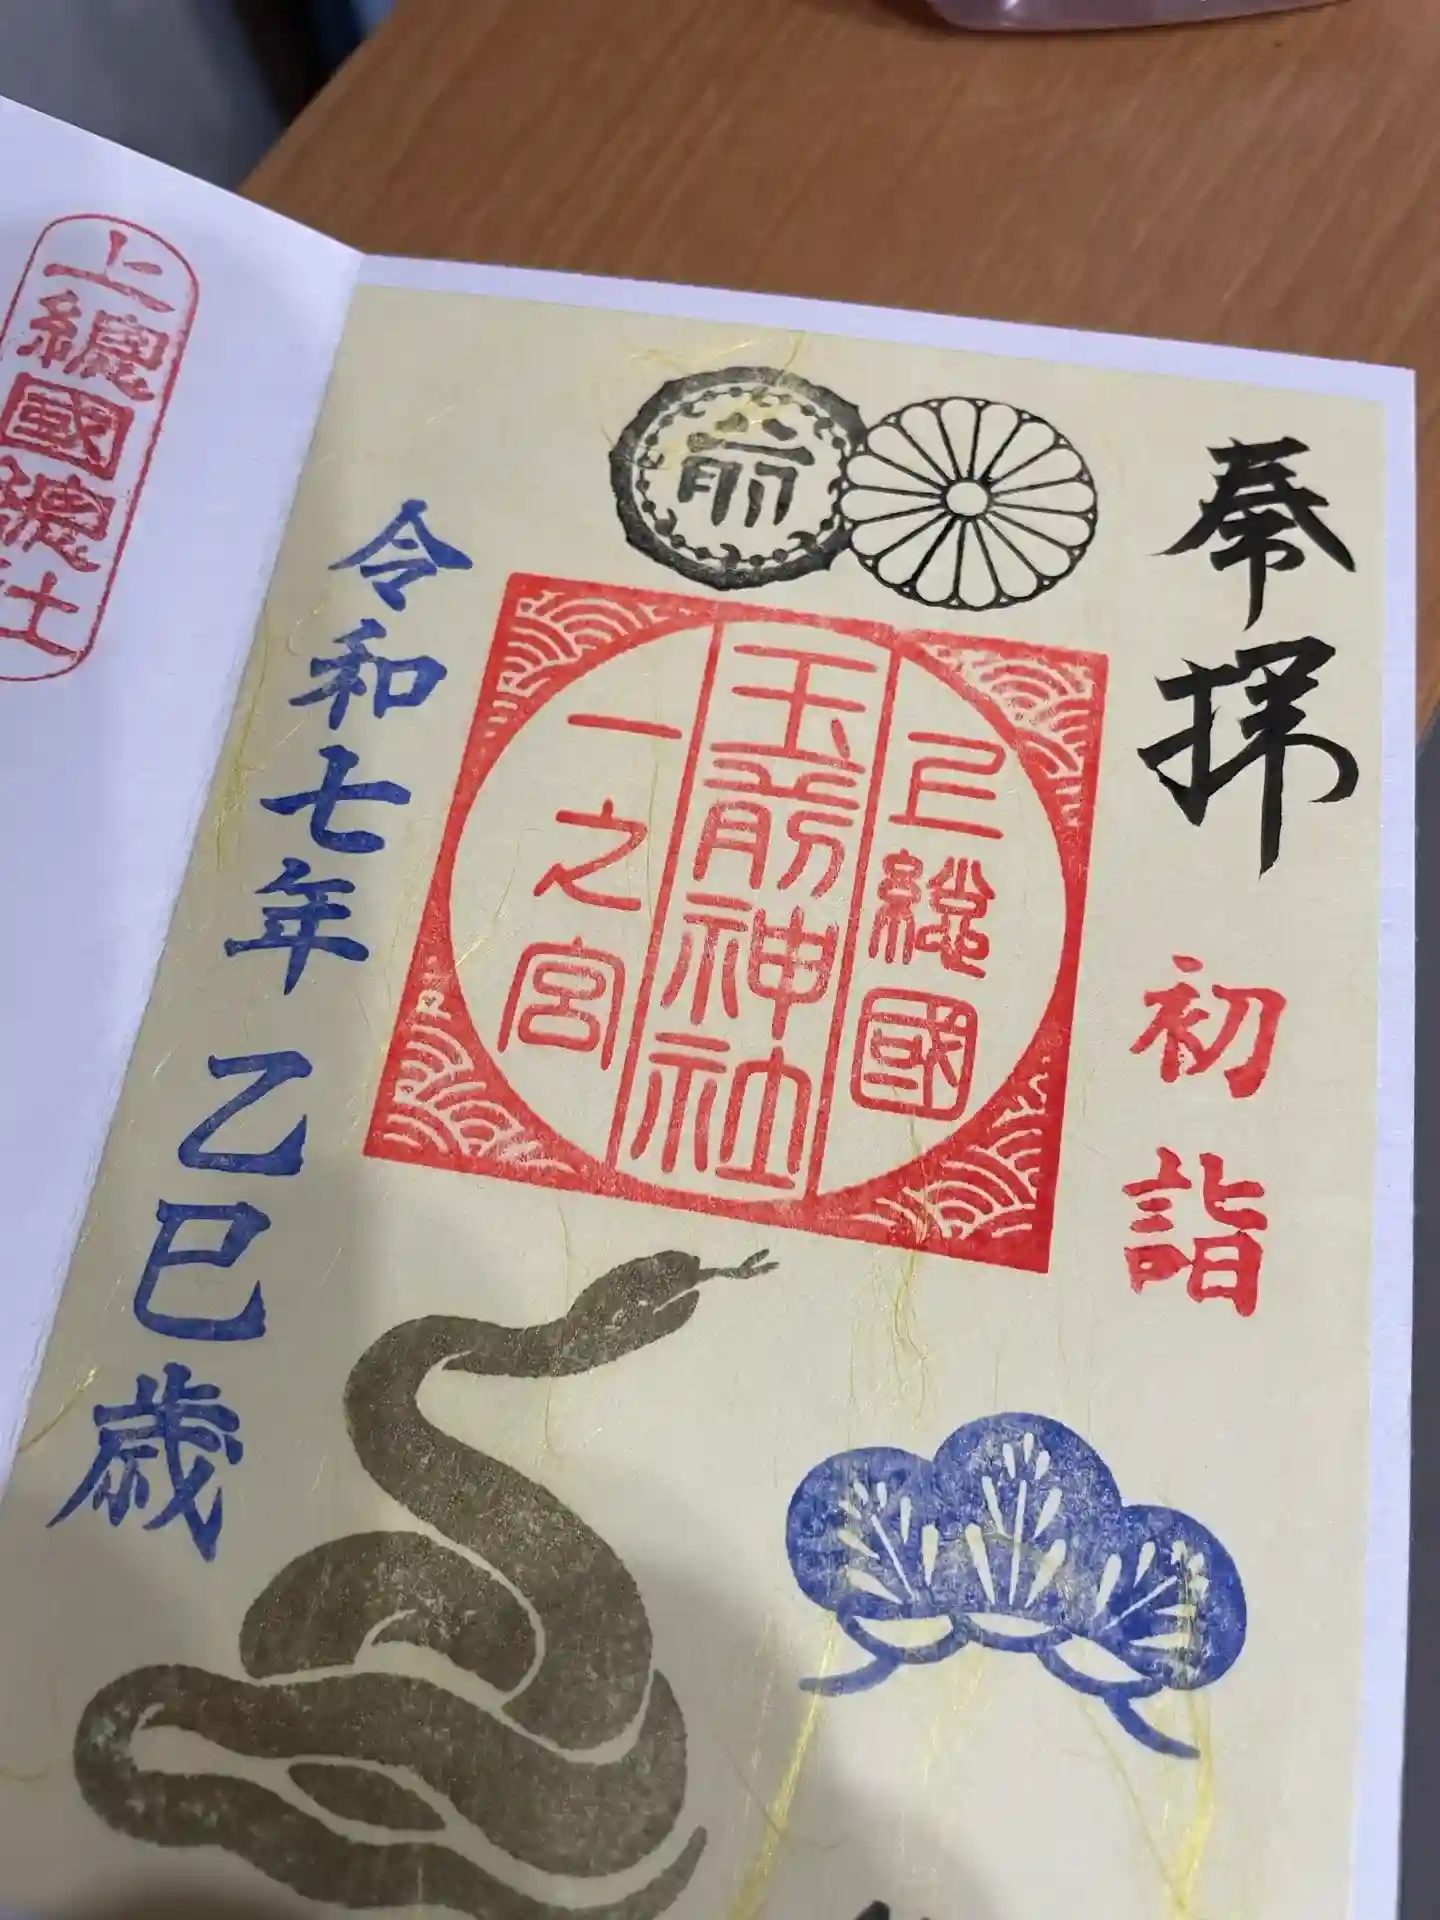 奉拝
初詣
前
上總國
玉前神社
一之宮
令和七年 乙巳歳
上總國總社